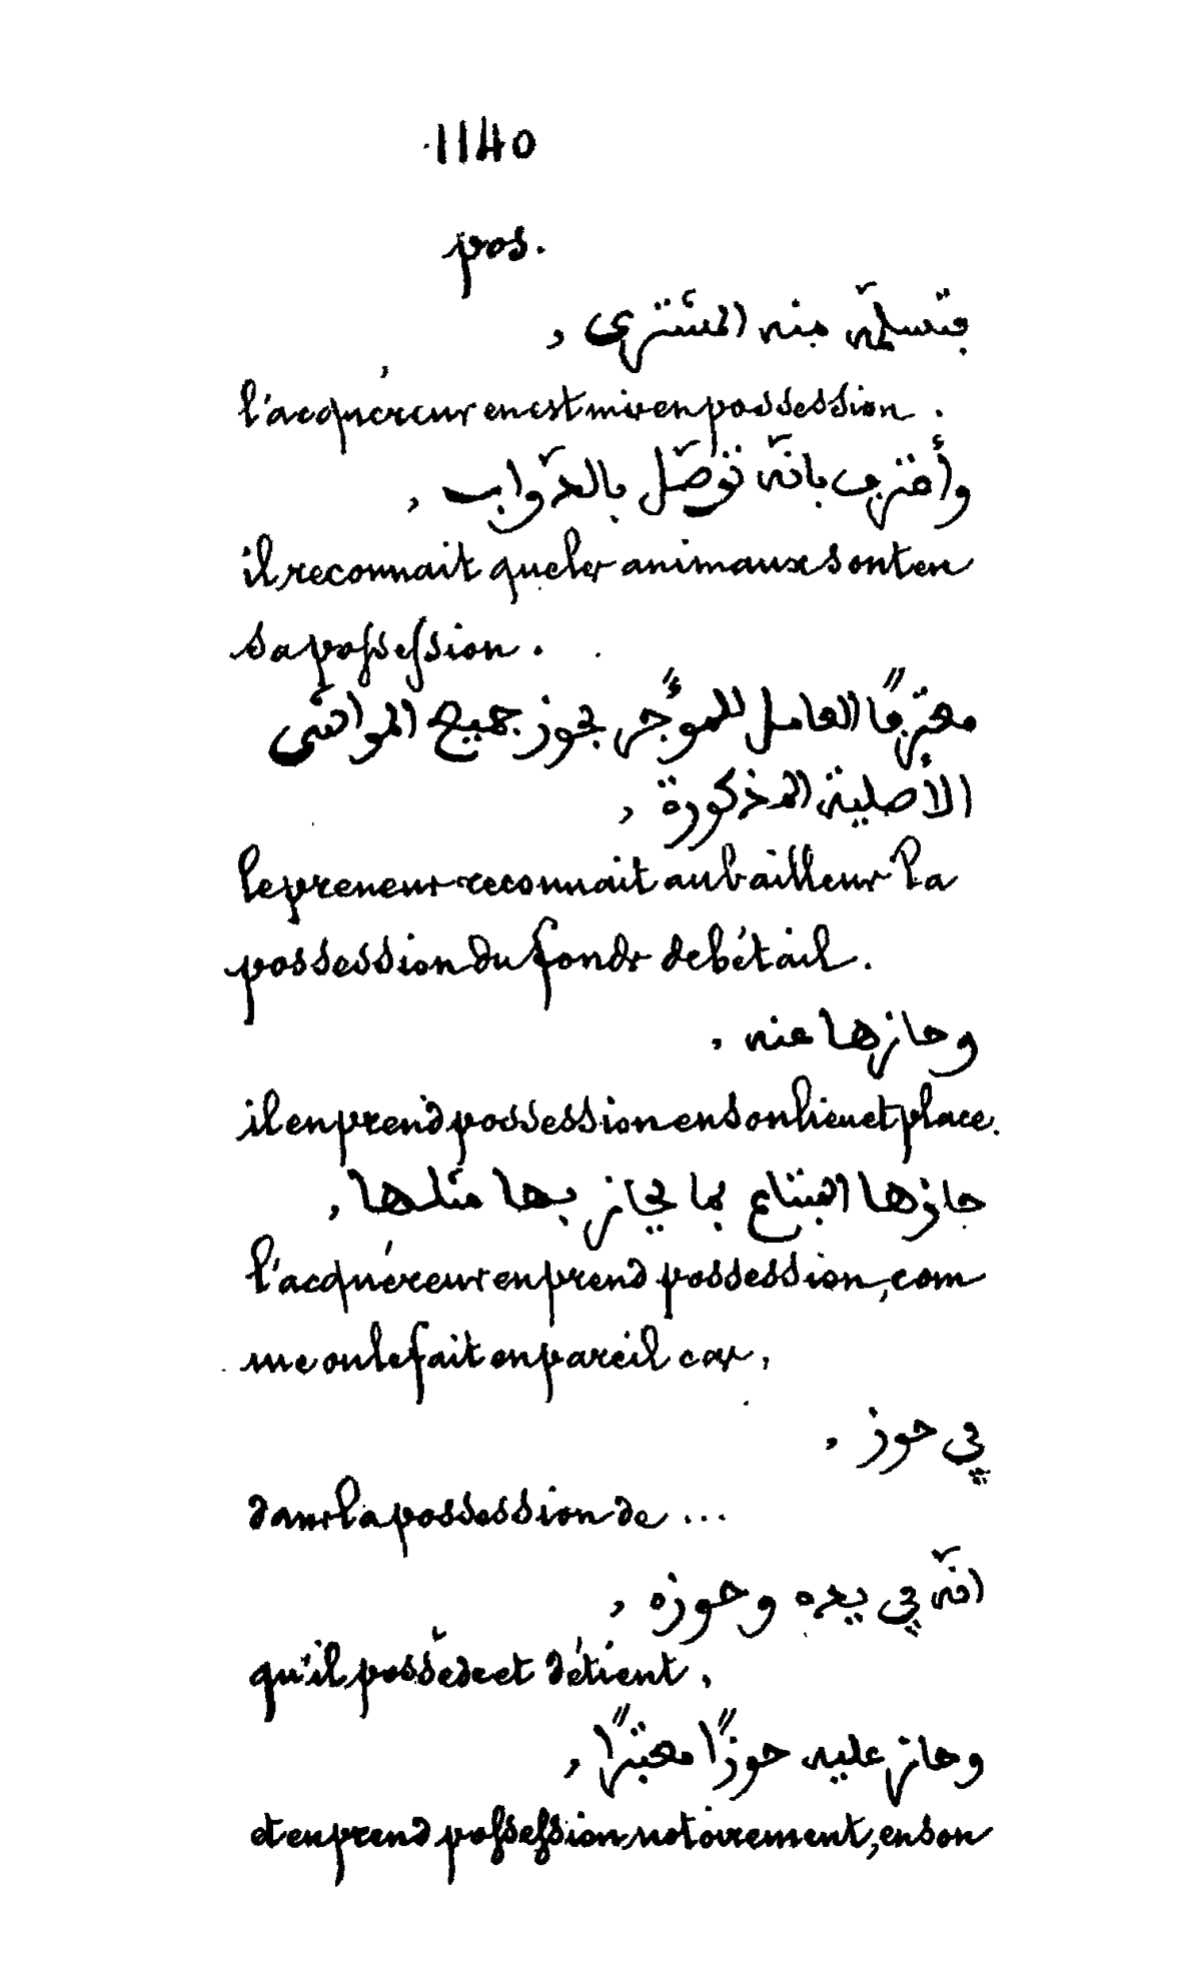 1140
pos.
فتسلمّه منه المشترى ,
l'acquéreur en est mis en possession.
وأعترف بانّه توصّل بالدّواب ,
il reconnait que les animaux sont en
sa possession.
معترفًا العامل للموًجر بحوز جميع المواشى
الأصلية المذكورة ,
le preneur reconnait au bailleur la
possession du fonds de bétail.
وحازها عنه ,
il en prend possession en son lieu et place.
حازها المبتاع بما يحاز بها مثلها ,
l'acquéreur en prend possession, com
me on le fait en pareil cas,
في حوز ,
dans la possession de ...
انّه في يده وحوزه ,
qu'il possède et détient,
وحاز عليه حوزًا معتبرًا ,
et en prend possession notoirement, en son